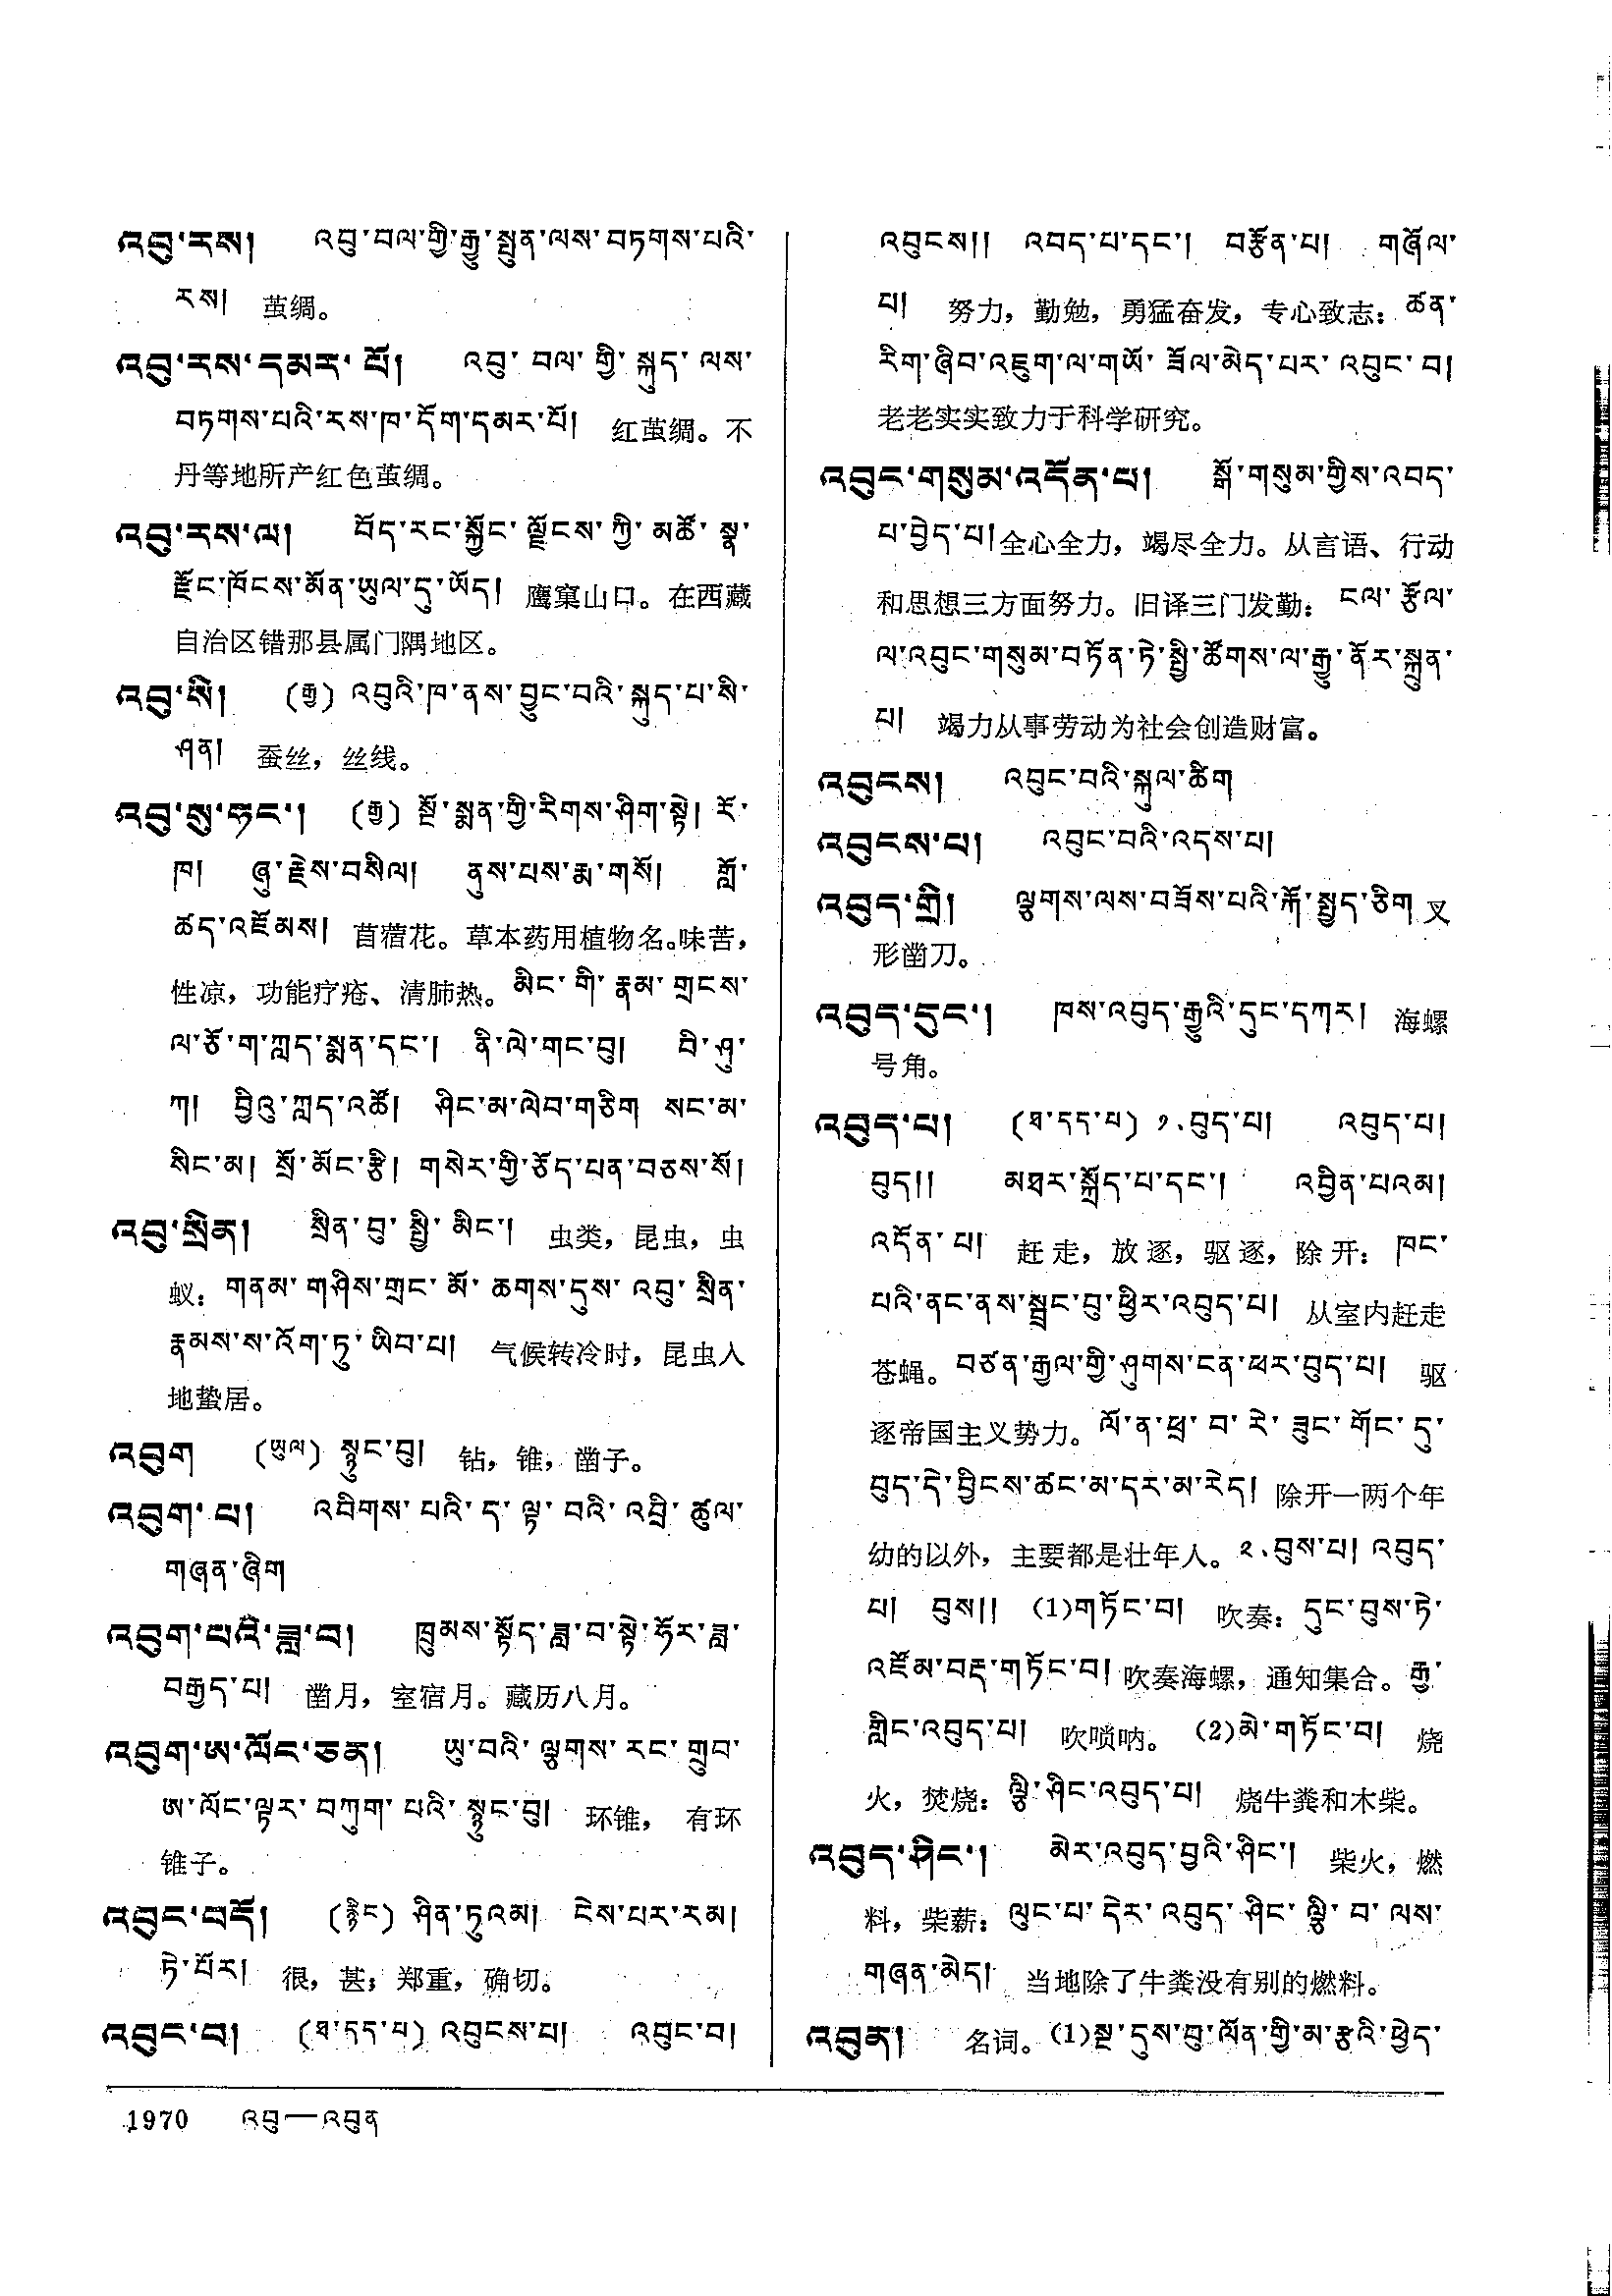 འབུ་རས། འབུ་བལ་གྱི་རྒྱུ་སྤུན་ལས་བཏགས་པའི་
རས། 茧绸。
འབུ་རས་དམར་པོ། འབུ་བལ་གྱི་སྐུད་ལས་
བཏགས་པའི་རས་ཁ་དོག་དམར་པོ། 红茧绸。不
丹等地所产红色茧绸。
འབུ་རས་ལ། བོད་རང་སྐྱོང་ལྗོངས་ཀྱི་མཚོ་སྣ་
རྫོང་ཁོངས་མོན་ཡུལ་དུ་ཡོད། 鹰窠山口。在西藏
自治区错那县属门隅地区。
འབུ་སི། (རྒྱ) འབུའི་ཁ་ནས་བྱུང་བའི་སྐུད་པ་སི་
ཤན། 蚕丝，丝线。
འབུ་སུ་ཧང་། (རྒྱ) སྔོ་སྨན་གྱི་རིགས་ཤིག་སྟེ། རོ་
ཁ། ཞུ་རྗེས་བསིལ། ནུས་པས་རྨ་གསོ། གློ་
ཚད་འཇོམས། 苜蓿花。草本药用植物名。味苦，
性凉，功能疗疮、清肺热。མིང་གི་རྣམ་གྲངས་
ལ་ཅོ་ག་ཀླད་སྨན་དང་། ནི་ལེ་གང་བུ། བི་ཤུ་
ཀ། བྱིའུ་ཀླད་འཚོ། ཤིང་མ་ལེབ་གཅིག སང་མ་
སིང་མ། སྲོ་མོང་རྩི། གསེར་གྱི་ཅོད་པན་བཅས་སོ།
འབུ་སྲིན། སྲིན་བུ་སྤྱི་མིང་། 虫类，昆虫，虫
蚁：གནམ་གཤིས་གྲང་མོ་ཆགས་དུས་འབུ་སྲིན་
རྣམས་ས་འོག་ཏུ་ཡིབ་པ། 气候转冷时，昆虫入
地蛰居。
འབུག (ཡུལ) སྙུང་བུ། 钻，锥，凿子。
འབུག་པ། འབིགས་པའི་ད་ལྟ་བའི་འབྲི་ཚུལ་
གཞན་ཞིག
འབུག་པའི་ཟླ་བ། ཁྲུམས་སྟོད་ཟླ་བ་སྟེ་ཧོར་ཟླ་
བརྒྱད་པ། 凿月，室宿月。藏历八月。
འབུག་ཨ་ལོང་ཅན། ཡུ་བའི་ལྕགས་རང་གྲུབ་
ཨ་ལོང་ལྟར་བཀུག་པའི་སྙུང་བུ། 环锥，有环
锥子。
འབུང་བདོ། (རྙིང) ཤིན་ཏུའམ། ངེས་པར་རམ།
ཏེ་པོར། 很，甚；郑重，确切。
འབུང་བ། (ཐ་དད་པ) འབུངས་པ། འབུང་བ།
འབུངས།། འབད་པ་དང་། བརྩོན་པ། གཞོལ་
པ། 努力，勤勉，勇猛奋发，专心致志：ཚན་
རིག་ཞིབ་འཇུག་ལ་གཡོ་ཟོལ་མེད་པར་འབུང་བ།
老老实实致力于科学研究。
འབུང་གསུམ་འདོན་པ། སྒོ་གསུམ་གྱིས་འབད་
པ་བྱེད་པ།全心全力，竭尽全力。从言语、行动
和思想三方面努力。旧译三门发勤：ངལ་རྩོལ་
ལ་འབུང་གསུམ་བཏོན་ཏེ་སྤྱི་ཚོགས་ལ་རྒྱུ་ནོར་སྐྲུན་
པ། 竭力从事劳动为社会创造财富。
འབུངས། འབུང་བའི་སྐུལ་ཚིག
འབུངས་པ། འབུང་བའི་འདས་པ།
འབུད་གྲི། ལྕགས་ལས་བཟོས་པའི་རྐོ་སྤྱད་ཅིག 叉
形凿刀。
འབུད་དུང་། ཁས་འབུད་རྒྱུའི་དུང་དཀར། 海螺
号角。
འབུད་པ། (ཐ་དད་པ) ༡.བུད་པ། འབུད་པ།
བུད།། མཐར་སྐྲོད་པ་དང་། འབྱིན་པའམ།
འདོན་པ། 赶走，放逐，驱逐，除开：ཁང་
པའི་ནང་ནས་སྦྲང་བུ་ཕྱིར་འབུད་པ། 从室内赶走
苍蝇。བཙན་རྒྱལ་གྱི་ཤུགས་ངན་ཕར་བུད་པ། 驱
逐帝国主义势力。ལོ་ན་ཕྲ་བ་རེ་ཟུང་གོང་དུ་
བུད་དེ་བྱིངས་ཚང་མ་དར་མ་རེད། 除开一两个年
幼的以外，主要都是壮年人。༢.བུས་པ། འབུད་
པ། བུས།། (1)གཏོང་བ། 吹奏：དུང་བུས་ཏེ་
འཛོམ་བརྡ་གཏོང་བ། 吹奏海螺，通知集合。རྒྱ་
གླིང་འབུད་པ། 吹唢呐。(2)མེ་གཏོང་བ། 烧
火，焚烧：ལྕི་ཤིང་འབུད་པ། 烧牛粪和木柴。
འབུད་ཤིང་། མེར་འབུད་བྱའི་ཤིང་། 柴火，燃
料，柴薪：ལུང་པ་དེར་འབུད་ཤིང་ལྕི་བ་ལས་
གཞན་མེད། 当地除了牛粪没有别的燃料。
འབུན། 名词。(1)སྔ་དུས་བུ་ལོན་གྱི་མ་རྩའི་ཕྱེད་
1970 འབུ—འབུན